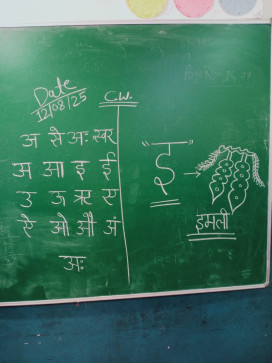 Date
12/08/25
C.W.
अ से अः स्वर
अ आ इ ई
उ ऊ ऋ ए
ऐ ओ औ अं
अः
"इ"
इमली